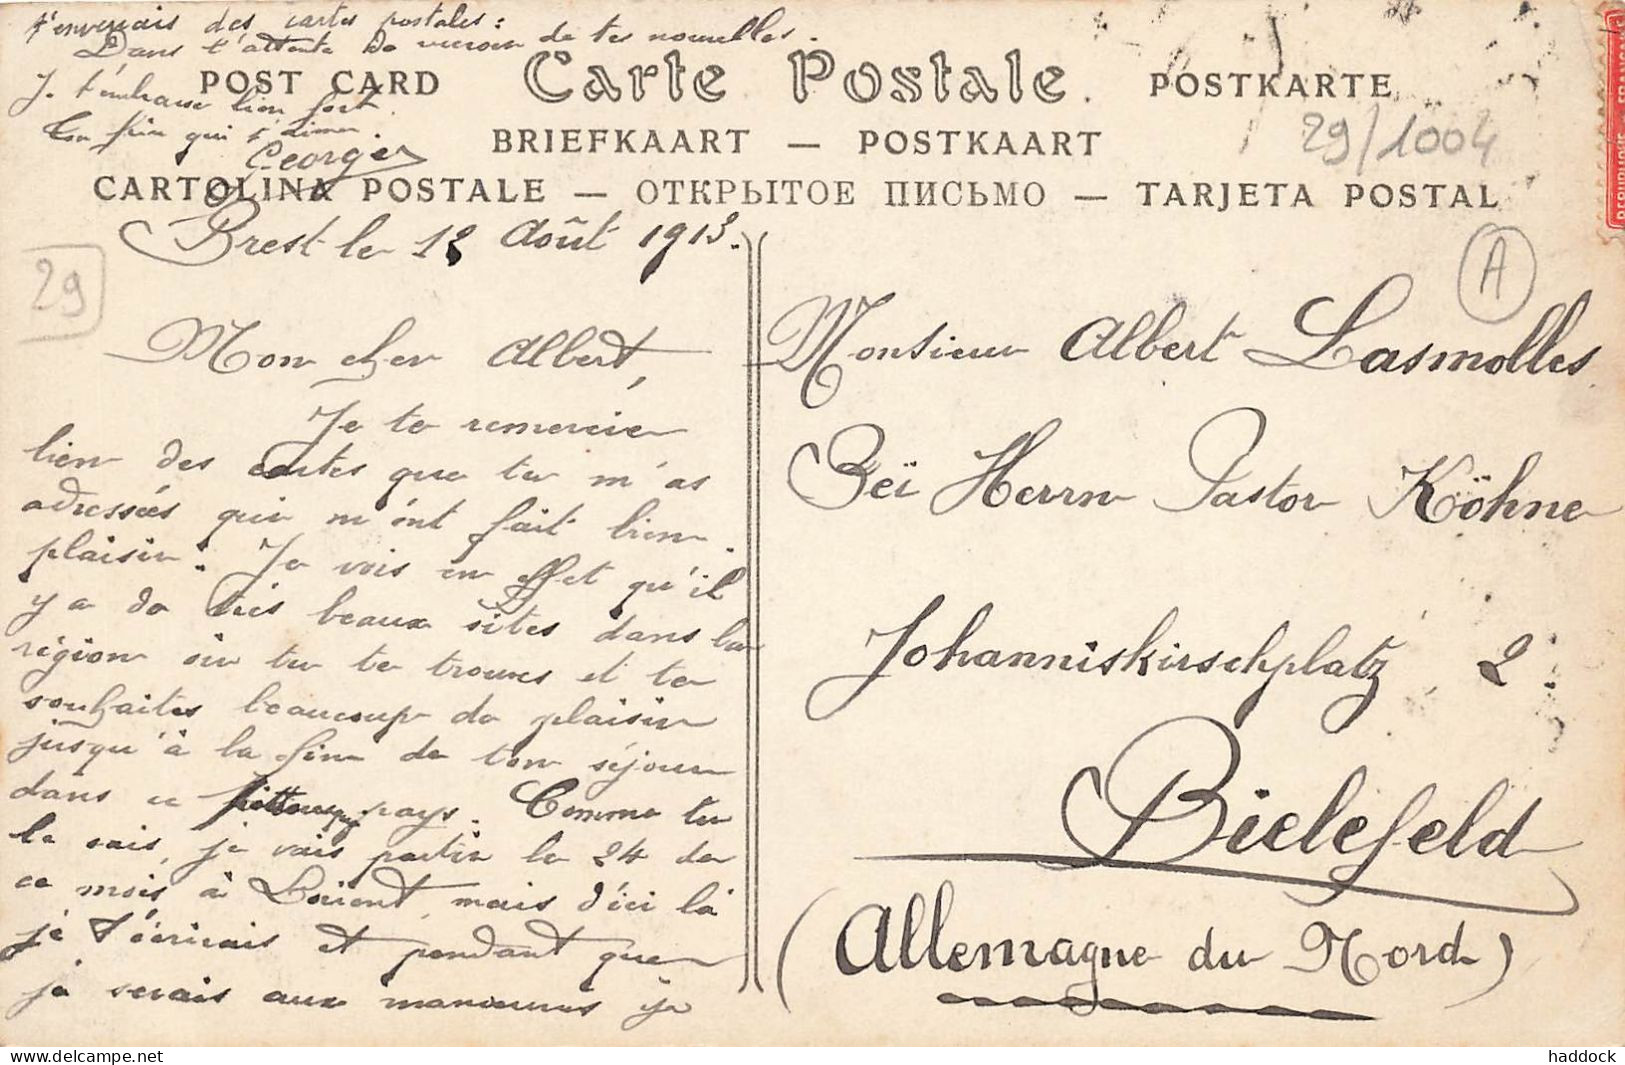 t'enverrais des cartes postales :
Dans l'attente de recevoir de tes nouelles.
Je t'embrasse bien fort.
Ton qui t'aime.
Georges
POST CARD Carte Postale. POSTKARTE
29/1004
BRIEFKAART — POSTKAART
CARTOLINA POSTALE — ОТКРЫТОЕ ПИСЬМО — TARJETA POSTAL
REPUBLIQUE FRANÇAISE
29
A
Brest le 12 Août 1913.
Mon cher Albert,
Je te remercie
bien des cartes que tu m'as
adressées qui m'ont fait bien
plaisir. Je vois en effet qu'il
y a de très beaux sites dans la
région où tu te trouves et te
souhaites beaucoup de plaisir
jusqu'à la fin de ton séjour
dans ce pays. Comme tu
le sais, je vais partir le 24 de
ce mois à Lorient, mais d'ici là
je t'écrirais et pendant que
je serais aux manœuvres je
Monsieur Albert Lasmolles
Beï Herrn Pastor Köhne
Johanniskirschplatz 2
Bielefeld
(Allemagne du Nord)
© haddock - www.delcampe.net